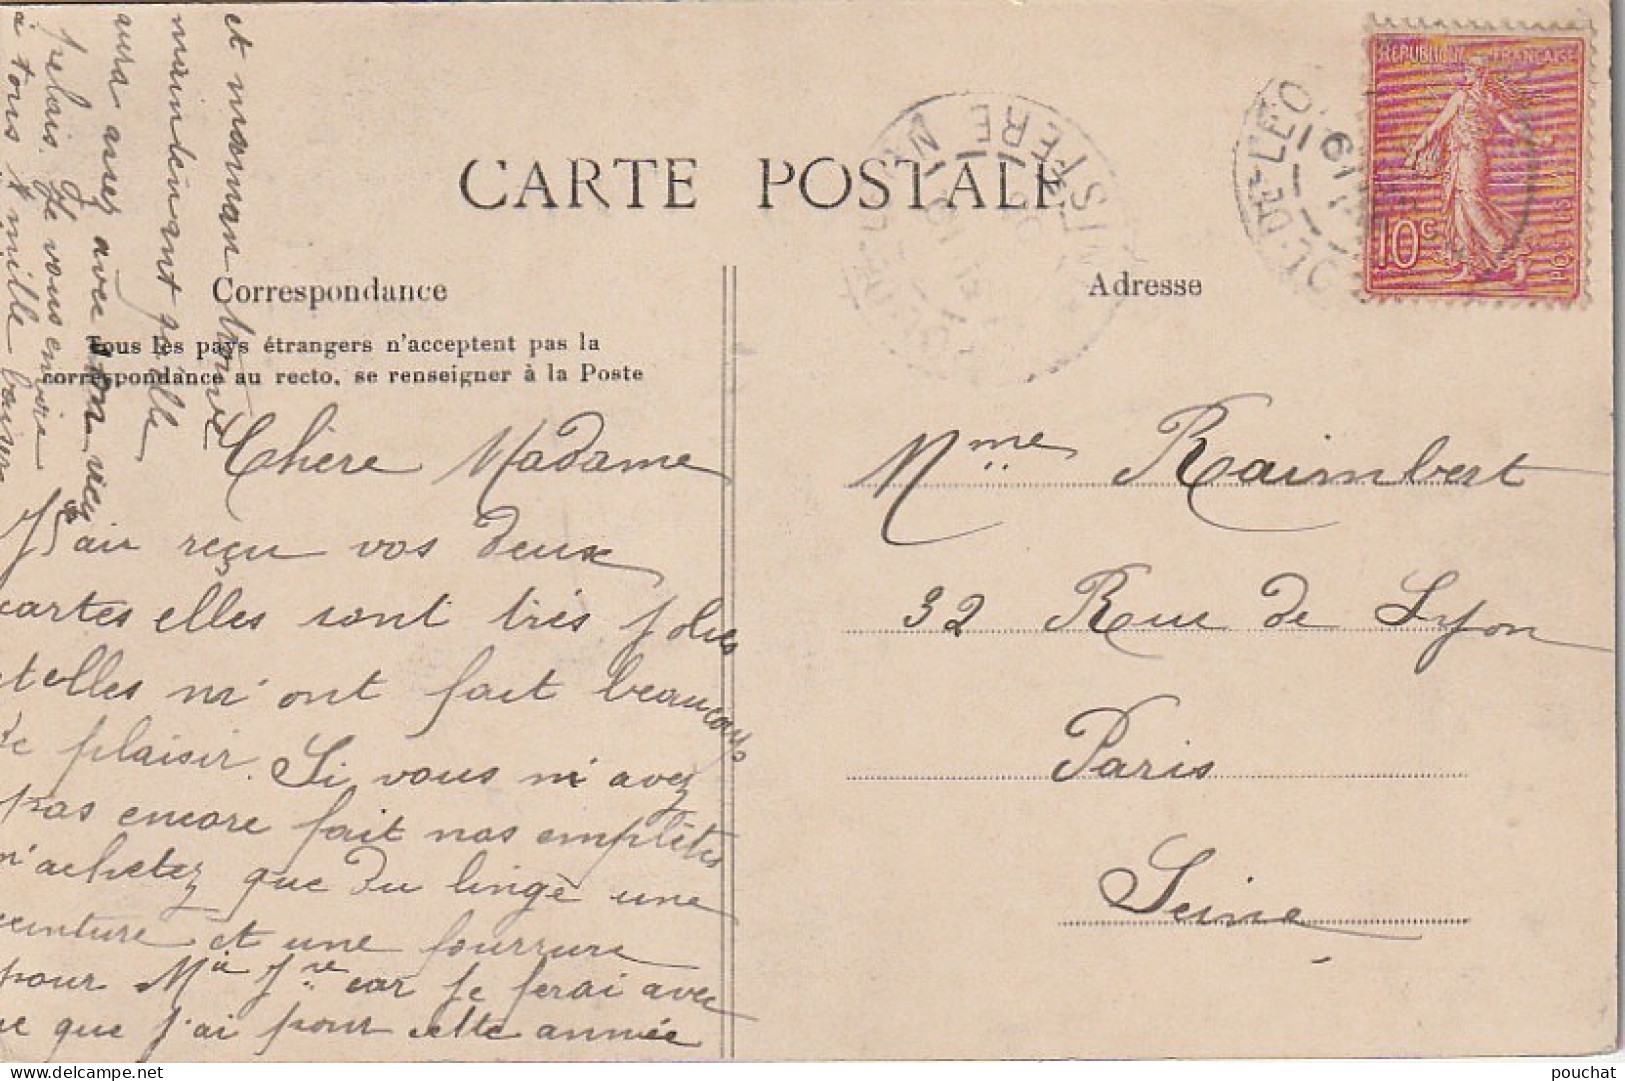 CARTE POSTALE
Correspondance
Tous les pays étrangers n'acceptent pas la
correspondance au recto, se renseigner à la Poste
Chère Madame
J'ai reçu vos deux
cartes elles sont très jolies
et elles m'ont fait beaucoup
de plaisir. Si vous n'avez
pas encore fait nos emplêtes
n'achetez que du linge une
ceinture et une fourrure
pour Mie Jre car je ferai avec
ce que j'ai pour cette année
et maman trouve
maintenant qu'elle
aura assez avec mon vieux
relais. Je vous envie
à tous mille baisers
Adresse
Mme Raimbert
32 Rue de Lyon
Paris
Seine
REPUBLIQUE FRANÇAISE
10c
POSTES
DE-LEO
FINISTERE
pouchat